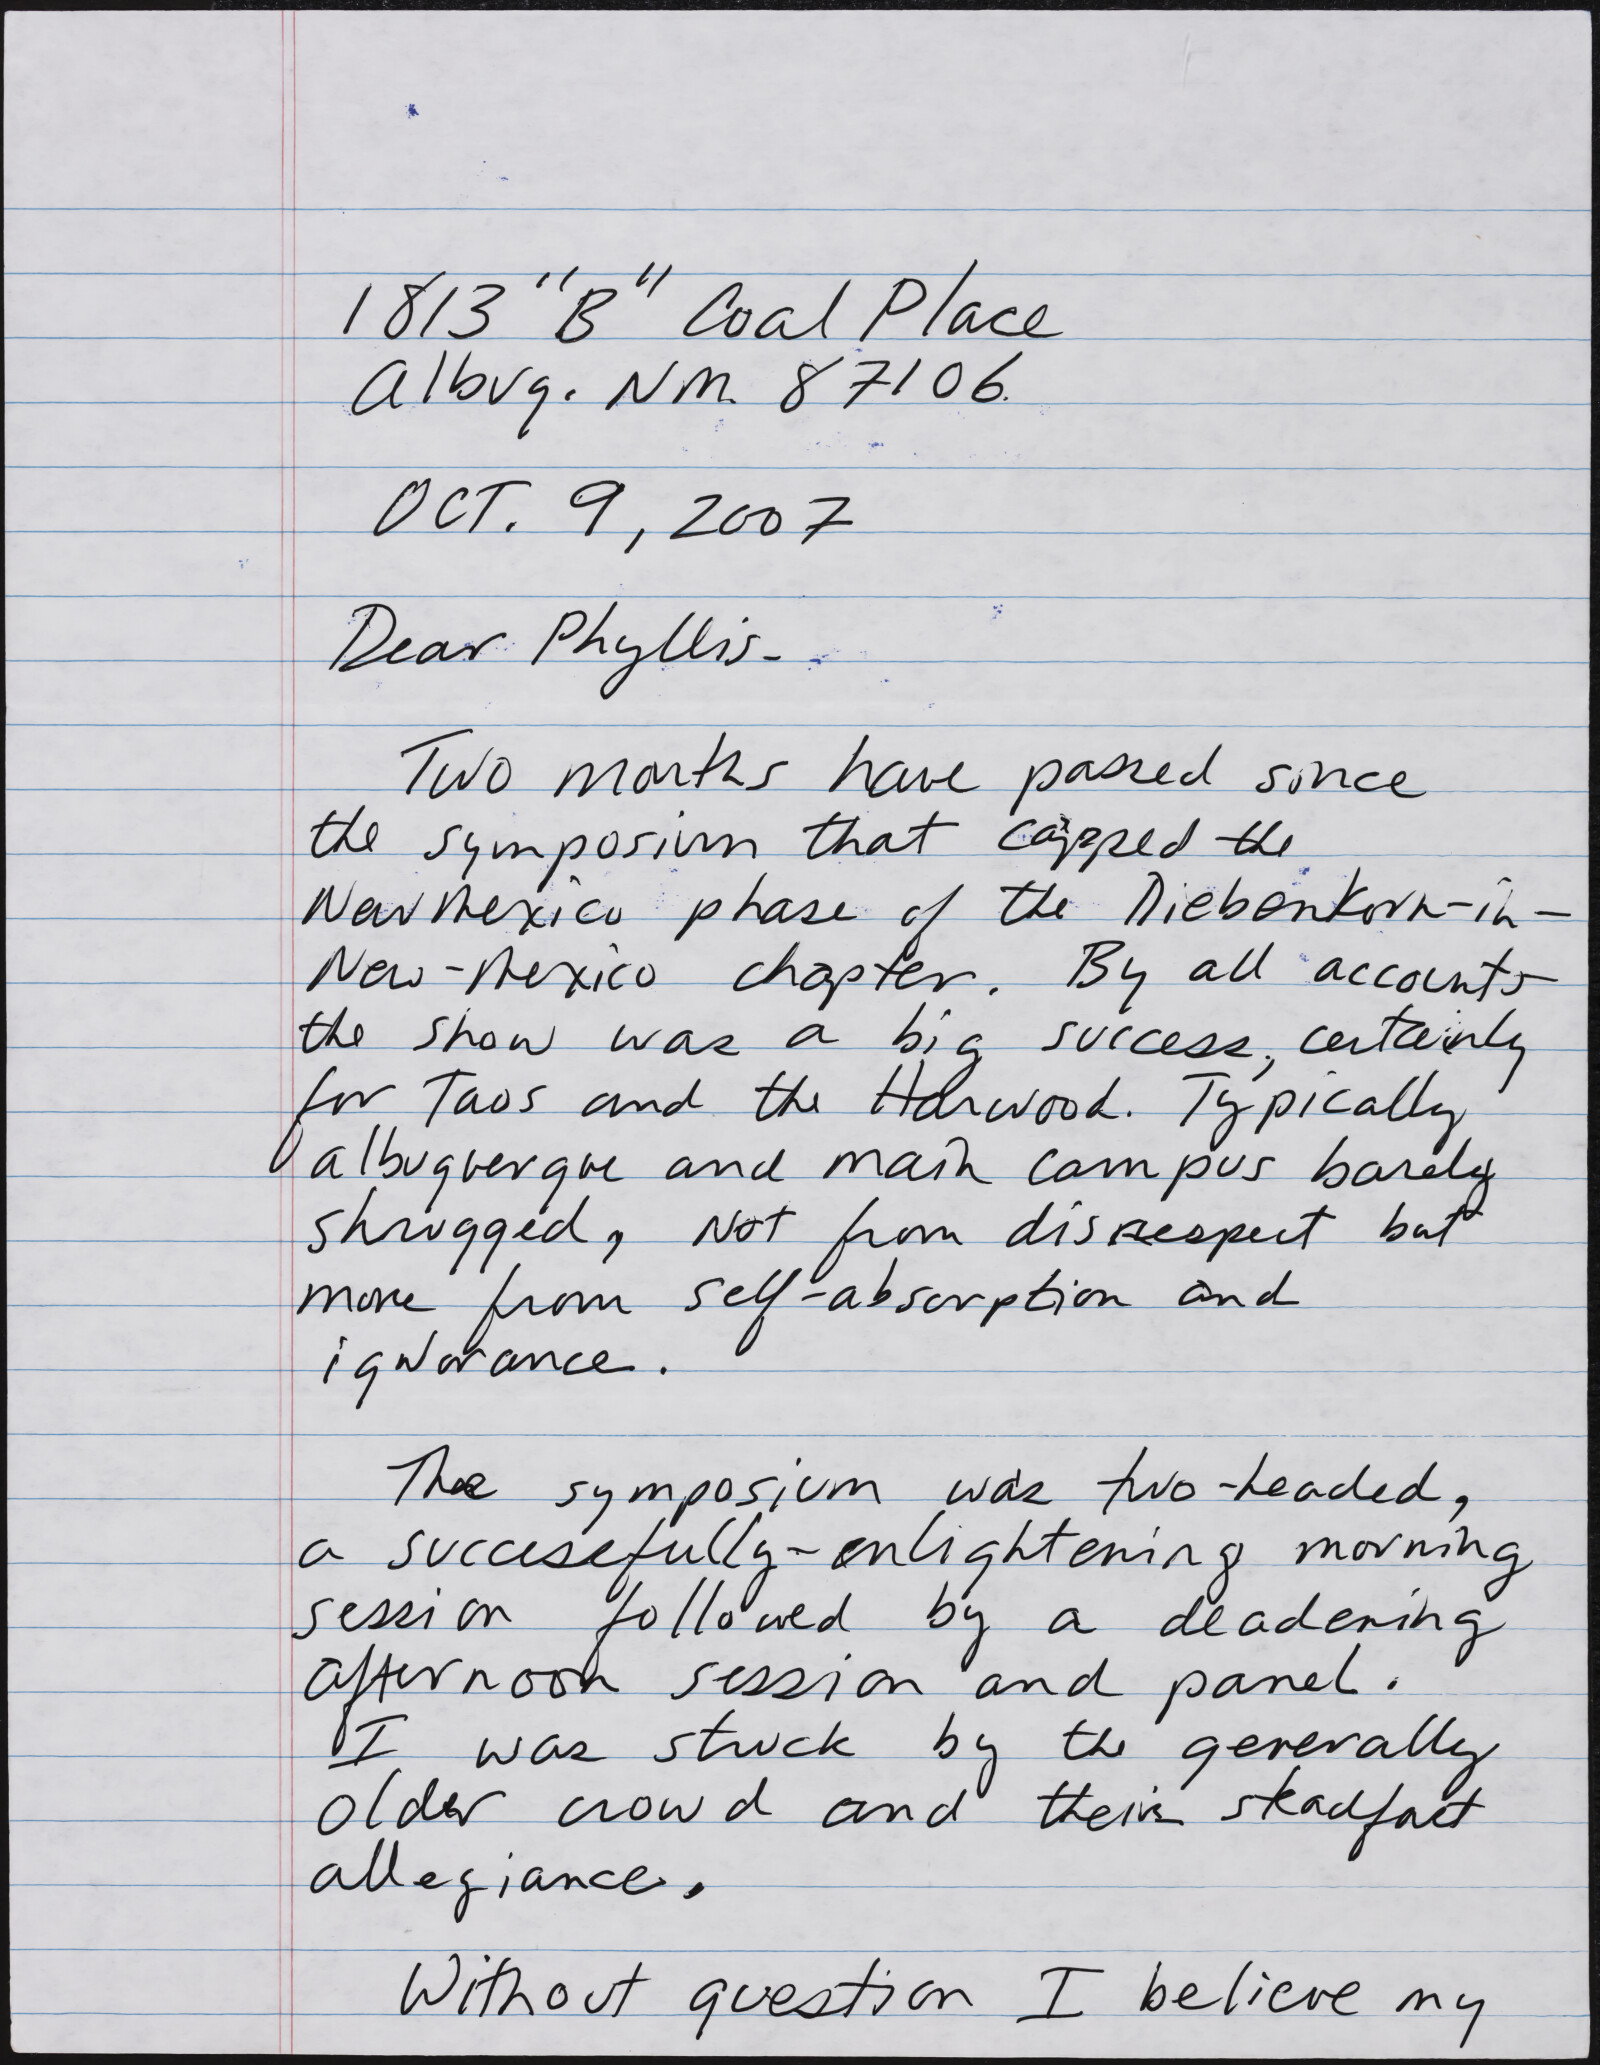 1813 "B" Coal Place
Albuq. NM. 87106.
OCT. 9, 2007
Dear Phyllis-
Two months have passed since
the symposium that capped the
New Mexico phase of the Diebenkorn-in-
New-Mexico chapter. By all accounts
the show was a big success, certainly
for Taos and the Harwood. Typically
Albuquerque and main campus barely
shrugged, not from disrespect but
more from self-absorption and
ignorance.
The symposium was two-headed,
a successfully-enlightening morning
session followed by a deadening
afternoon session and panel.
I was struck by the generally
older crowd and their steadfast
allegiance.
Without question I believe my